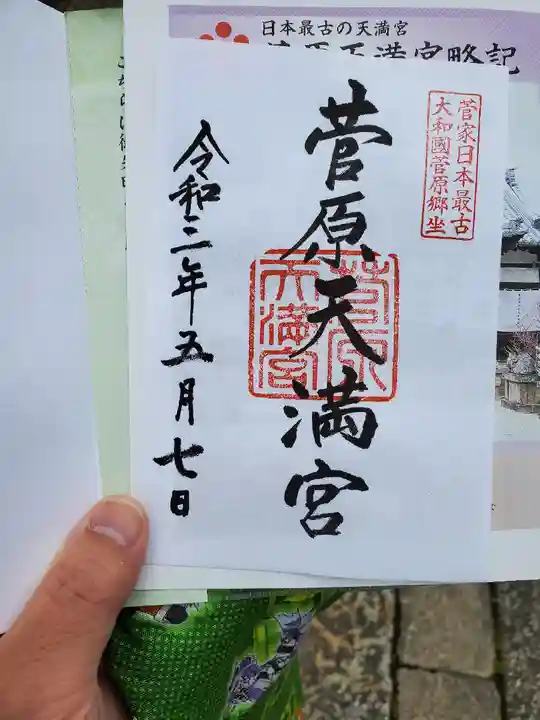 日本最古の天満宮
菅原天満宮略記
菅家日本最古
大和國菅原郷坐
菅原天満宮
菅原
天満宮
令和二年五月七日